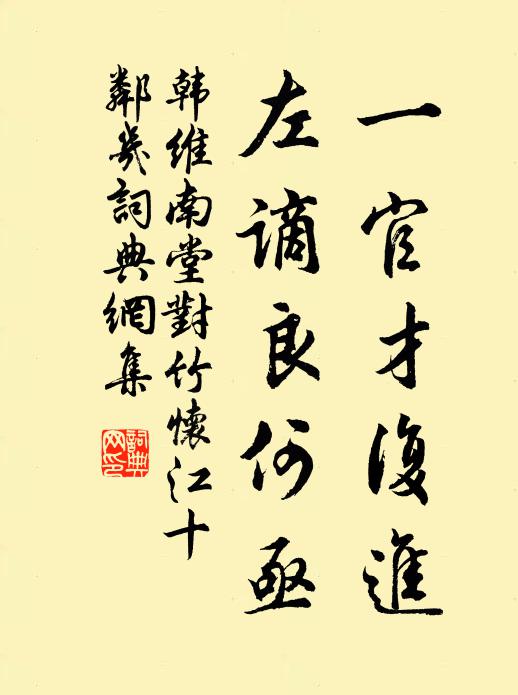 一官才復進
左謫良何亟
韩維南堂對竹懷江十
鄰幾詞典網集
詞典
网印